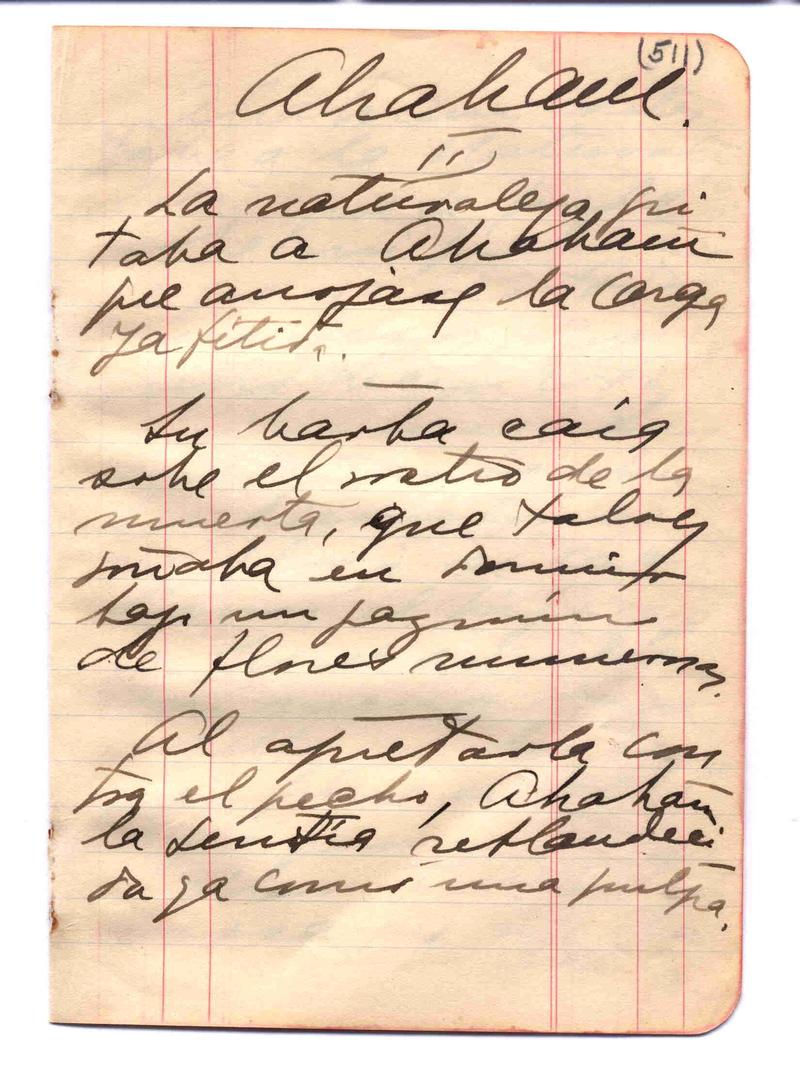 (511)
Abraham.
II
La naturaleza gri
taba a Abraham
que arrojase la carga
ya fétida.
Su barba caía
sobe el rostro de la
muerta, que talvez
soñaba en dormir
bajo un jazmín
de flores numerosas.
Al apretarla con
tra el pecho, Abraham
la sentía reblandeci
da ya como una pulpa.